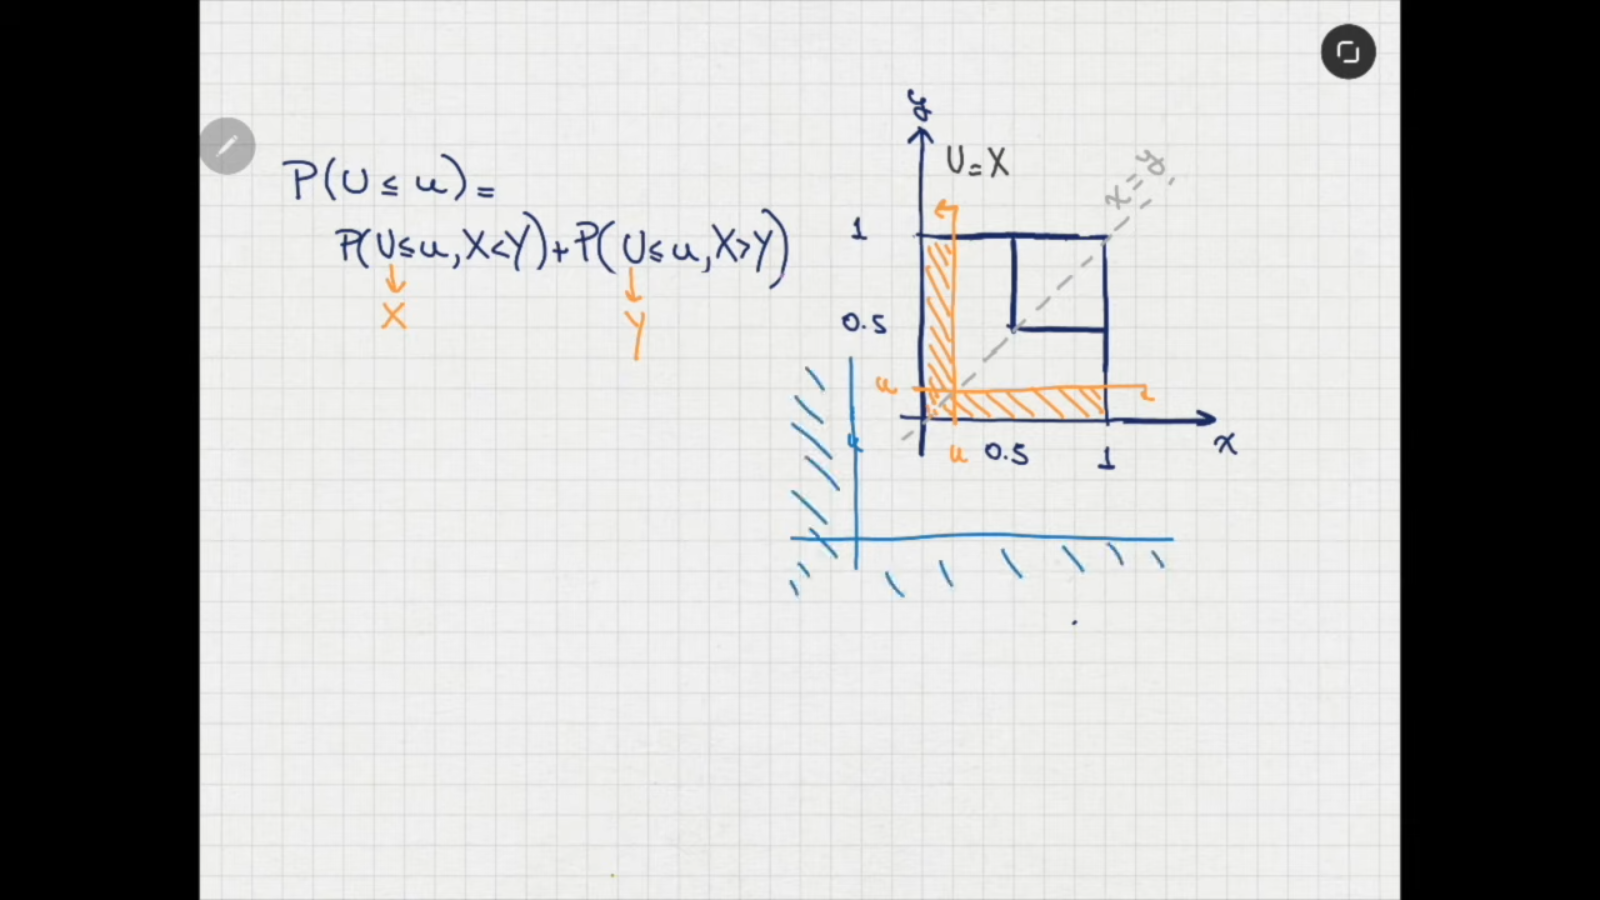 P(U ≤ u) =
P(U ≤ u, X < Y) + P(U ≤ u, X > Y)
X
Y
y
U = X
x = y
1
0.5
u
u
0.5
1
x
u